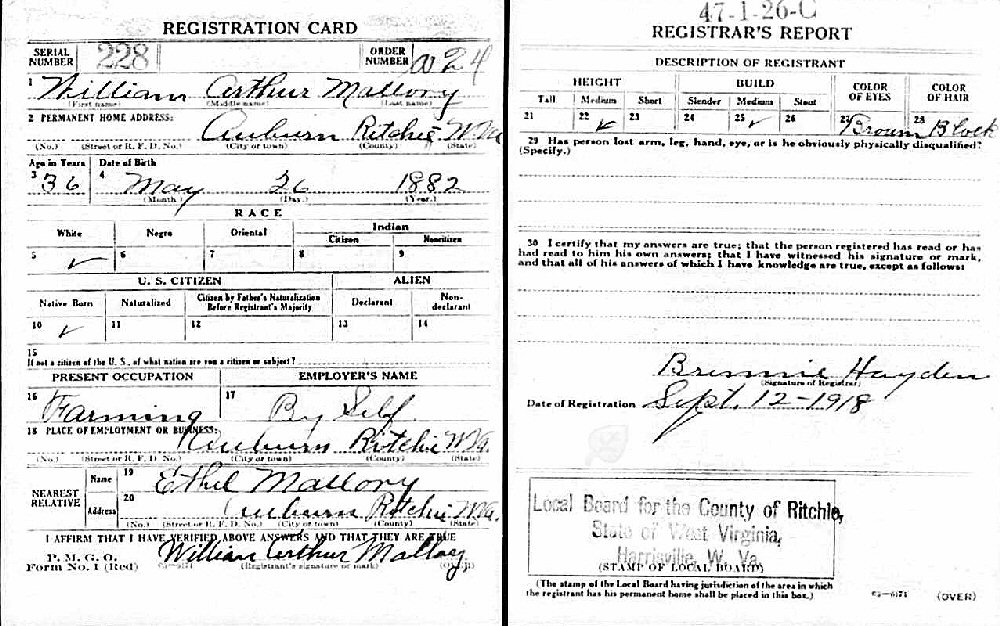 REGISTRATION CARD
SERIAL NUMBER 228 ORDER NUMBER a24
1 William Arthur Mallory
(First name) (Middle name) (Last name)
2 PERMANENT HOME ADDRESS:
Auburn Ritchie W.Va
(No.) (Street or R. F. D. No.) (City or town) (County) (State)
Age in Years Date of Birth
3 36 4 May 26 1882
(Month) (Day) (Year)
RACE
White Negro Oriental Indian
Citizen Noncitizen
5 ✓ 6 7 8 9
U. S. CITIZEN ALIEN
Native Born Naturalized Citizen by Father's Naturalization Before Registrant's Majority Declarant Non-declarant
10 ✓ 11 12 13 14
15
If not a citizen of the U. S., of what nation are you a citizen or subject?
PRESENT OCCUPATION EMPLOYER'S NAME
16 Farming 17 By Self
18 PLACE OF EMPLOYMENT OR BUSINESS:
Auburn Ritchie W.Va.
(No.) (Street or R. F. D. No.) (City or town) (County) (State)
NEAREST RELATIVE Name 19 Ethel Mallory
Address 20 Auburn Ritchie W.Va.
(No.) (Street or R. F. D. No.) (City or town) (County) (State)
I AFFIRM THAT I HAVE VERIFIED ABOVE ANSWERS AND THAT THEY ARE TRUE
P. M. G. O.
Form No. 1 (Red) William Arthur Mallory
(Registrant's signature or mark) (OVER)
47-1-26-C
REGISTRAR'S REPORT
DESCRIPTION OF REGISTRANT
HEIGHT BUILD COLOR OF EYES COLOR OF HAIR
Tall Medium Short Slender Medium Stout
21 22 ✓ 23 24 25 ✓ 26 27 Brown 28 Black
29 Has person lost arm, leg, hand, eye, or is he obviously physically disqualified?
(Specify.)
30 I certify that my answers are true; that the person registered has read or has
had read to him his own answers; that I have witnessed his signature or mark,
and that all of his answers of which I have knowledge are true, except as follows:
Brennie Hayden
(Signature of Registrar)
Date of Registration Sept. 12-1918
Local Board for the County of Ritchie,
State of West Virginia,
Harrisville, W. Va.
(STAMP OF LOCAL BOARD)
(The stamp of the Local Board having jurisdiction of the area in which
the registrant has his permanent home shall be placed in this box.)
(OVER)